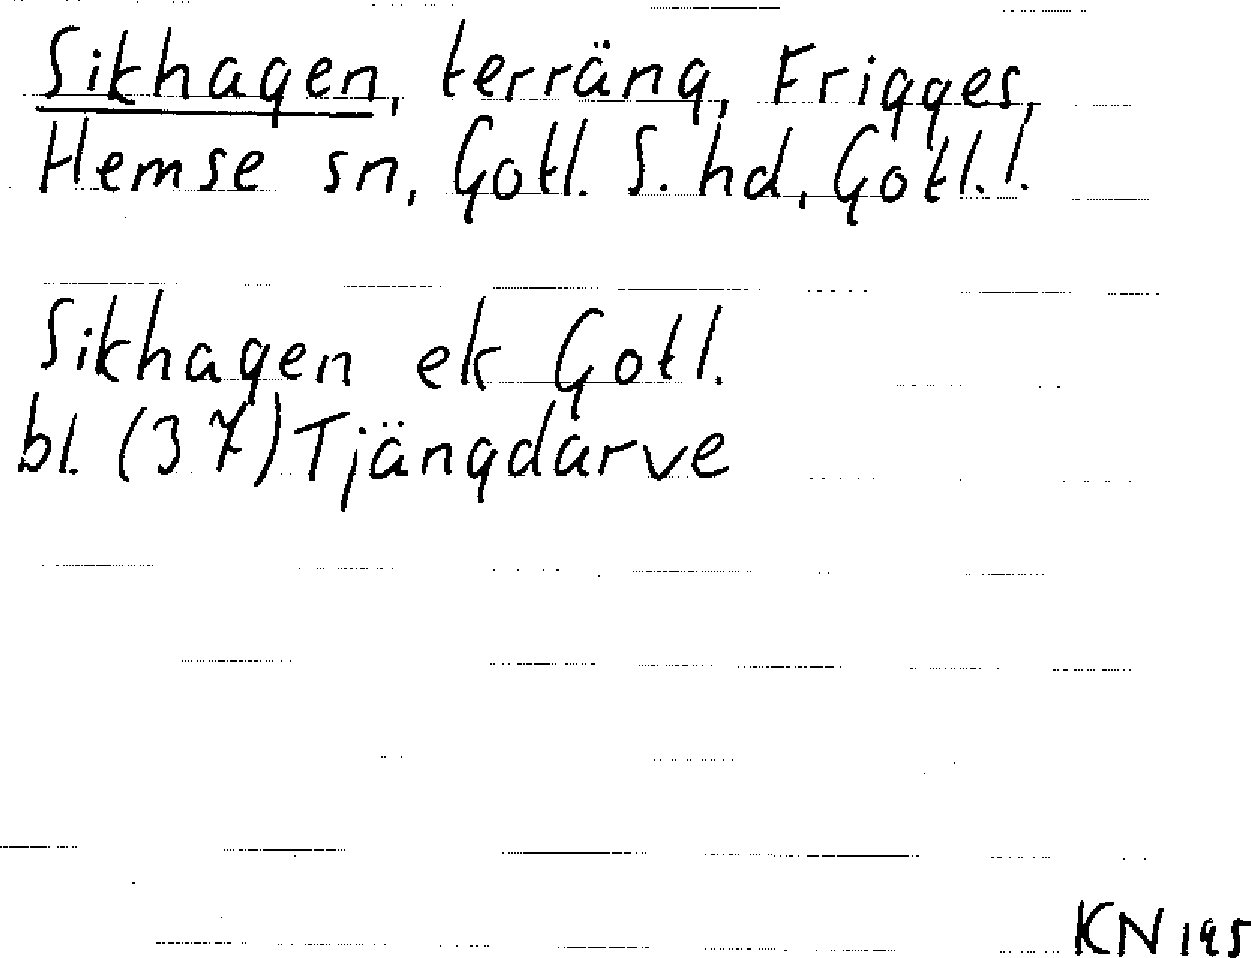 Sikhagen, terräng, Frigges,
Hemse sn, Gotl. S. hd, Gotl.!.
Sikhagen ek Gotl.
bl. (37) Tjängdarve
KN 195